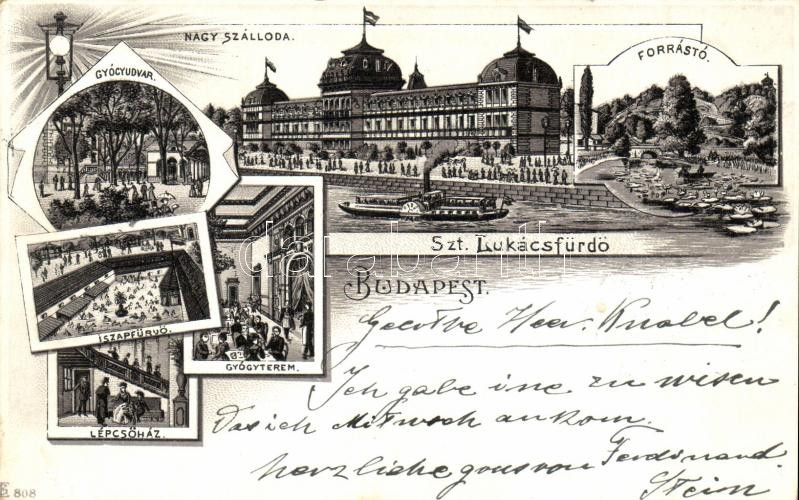 NAGY SZÁLLODA.
FORRÁSTÓ.
GYÓGYUDVAR.
Szt. Lukácsfürdö
BUDAPEST.
ISZAPFÜRDŐ.
GYÓGYTEREM.
LÉPCSŐHÁZ.
Geerthe Herr. Knobel!
Ich gabe ine zu wisen
Das ich Mitwoch ankom.
herzliche gous von Ferdinand
Stein
808
darabanth